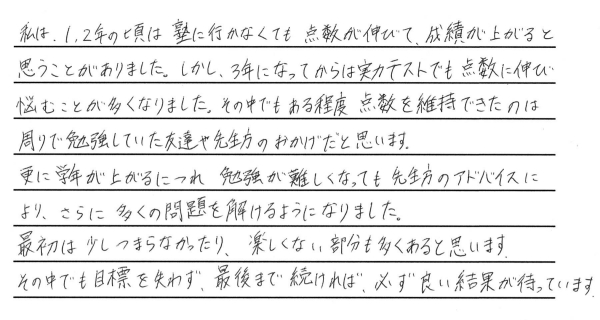 私は、1,2年の頃は 塾に行かなくても 点数が伸びて、成績が上がると
思うことがありました。しかし、3年になってからは実力テストでも 点数に伸び
悩むことが多くなりました。その中でも ある程度 点数を維持できたのは
周りで勉強していた友達や先生方のおかげだと思います。
更に学年が上がるにつれ 勉強が難しくなっても 先生方のアドバイスに
より、さらに 多くの問題を解けるようになりました。
最初は 少しつまらなかったり、 楽しくない部分も多くあると思います。
その中でも 目標を失わず、最後まで 続ければ、必ず 良い結果が待っています。